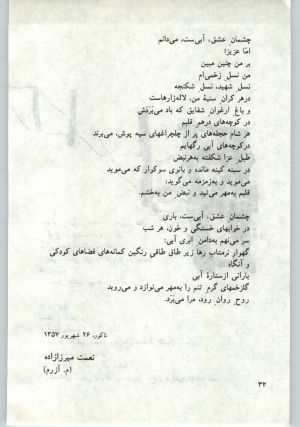 چشمان عشق، آبی‌ست، می‌دانم
امّا عزیزا
بر من چنین مبین
من نسل زخمی‌ام
نسل شهید، نسل شکنجه
در هر کران سینهٔ من، لاله‌زارهاست
و باغ ارغوان شقایق که باد می‌بردش
در کوچه‌های درهم قلبم
هر شام حجله‌های پر از چلچراغهای سیه پوش، می‌برند
در کوچه‌های آبی رگهایم
طبل عزا شکفته به‌هرنبض
در سینه کینه مانده و بانری سوکوار که می‌موید
می‌موید و به‌زمزمه می‌گوید:
قلبم به‌مهر می‌تپد و نبض من به‌خشم.
چشمان عشق، آبی‌ست، باری
در خوابهای خستگی و خون، هر شب
سر می‌نهم به‌دامن ابری آبی:
گهوارِ نرمتابِ رها زیر طاق طاقیِ رنگین کمانه‌های فضاهای کودکی
و آنگاه
بارانی ازستارهٔ آبی
گلزخمهای گرمِ تنم را به‌مهر می‌نوازد و می‌روید
روحِ روانِ رود، مرا می‌برد.
تاکور، ۲۶ شهریور ۱۳۵۷
نعمت میرزازاده
(م. آزرم)
۳۲